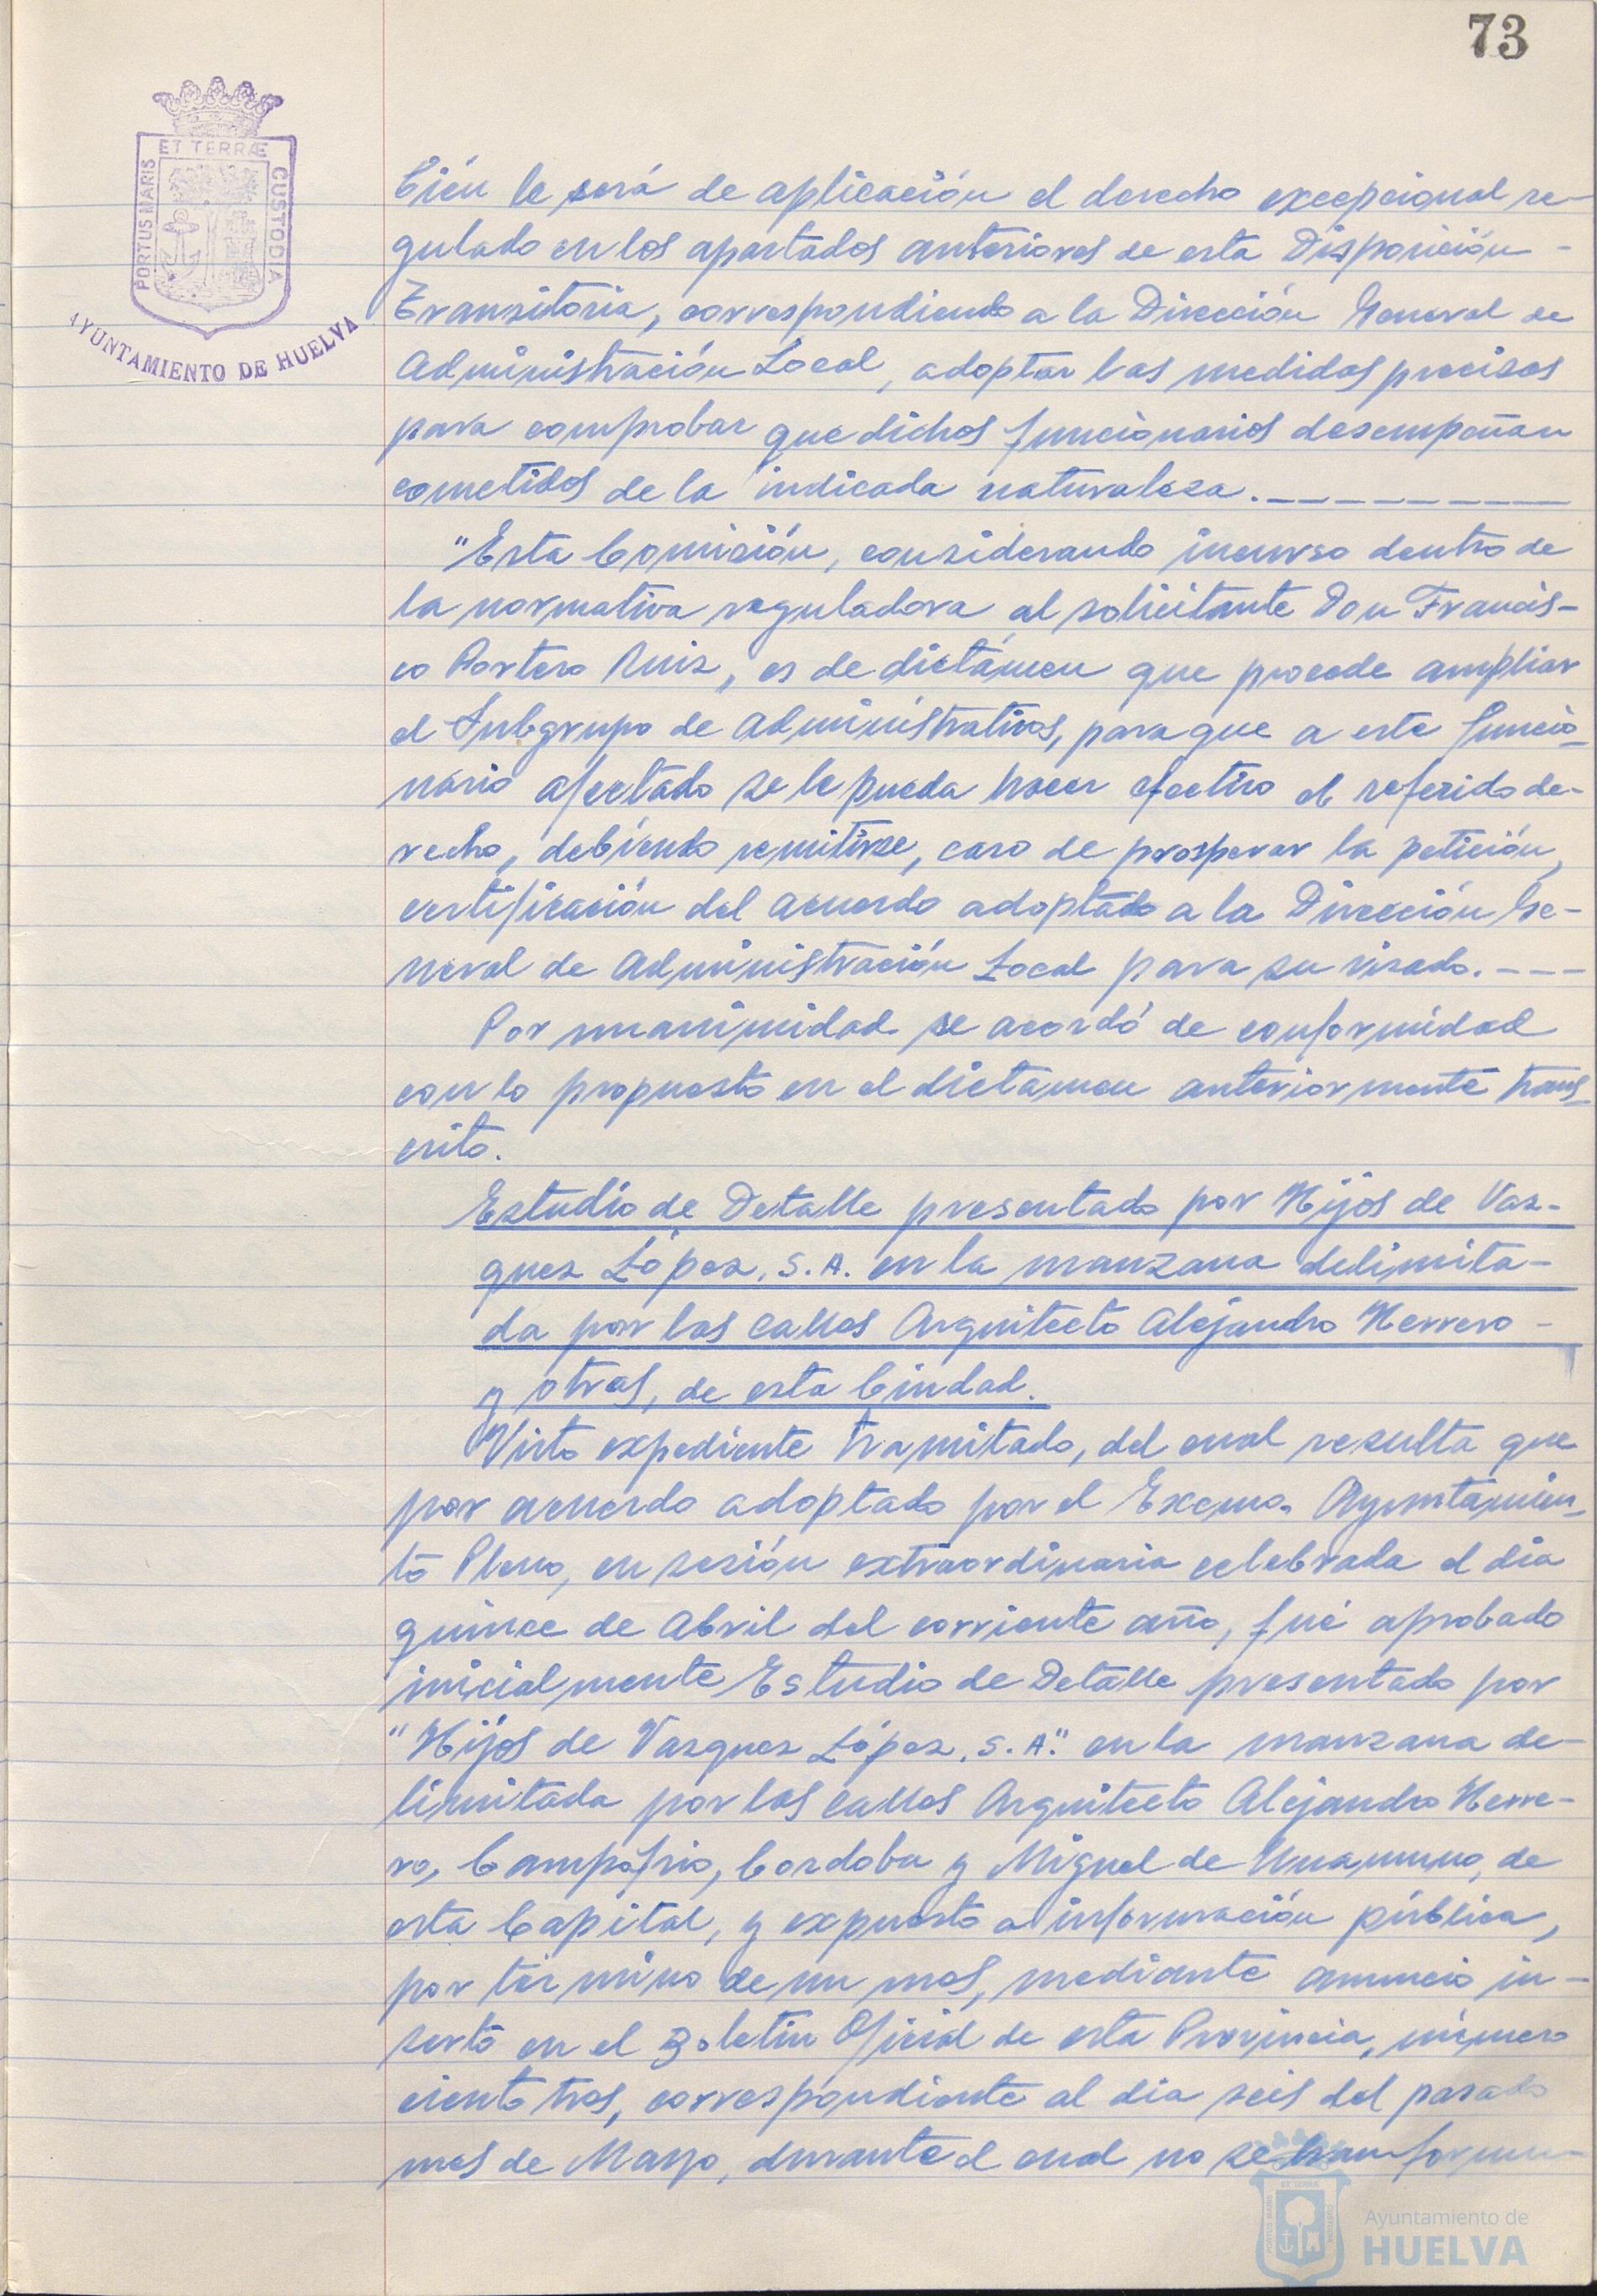 73
ET TERRÆ
PORTUS MARIS
CUSTODIA
AYUNTAMIENTO DE HUELVA
bién le será de aplicación el derecho excepcional re-
gulado en los apartados anteriores de esta Disposición -
Transitoria, correspondiendo a la Dirección General de
Administración Local, adoptar las medidas precisas
para comprobar que dichos funcionarios desempeñan
cometidos de la indicada naturaleza.
"Esta Comisión, considerando incurso dentro de
la normativa reguladora al solicitante Don Francis-
co Portero Ruiz, es de dictámen que procede ampliar
el Subgrupo de Administrativos, para que a este funcio-
nario afectado se le pueda hacer efectivo el referido de-
recho, debiendo remitirse, caso de prosperar la petición,
certificación del acuerdo adoptado a la Dirección Ge-
neral de Administración Local para su visado.---
Por unanimidad se acordó de conformidad
con lo propuesto en el dictamen anteriormente trans-
crito.
Estudio de Detalle presentado por Hijos de Vaz-
quez López, S.A. en la manzana delimita-
da por las calles Arquitecto Alejandro Herrero -
y otras, de esta Ciudad.
Visto expediente tramitado, del cual resulta que
por acuerdo adoptado por el Excmo. Ayuntamien-
to Pleno, en sesión extraordinaria celebrada el dia
quince de Abril del corriente año, fué aprobado
inicialmente Estudio de Detalle presentado por
"Hijos de Vazquez López, S.A." en la manzana de-
limitada por las calles Arquitecto Alejandro Herre-
ro, Campofrio, Cordoba y Miguel de Unamuno, de
esta Capital, y expuesto a información pública,
por término de un mes, mediante anuncio in-
serto en el Boletin Oficial de esta Provincia, número
ciento tres, correspondiente al dia seis del pasado
mes de Mayo, durante el cual no se han formu-
Ayuntamiento de
HUELVA